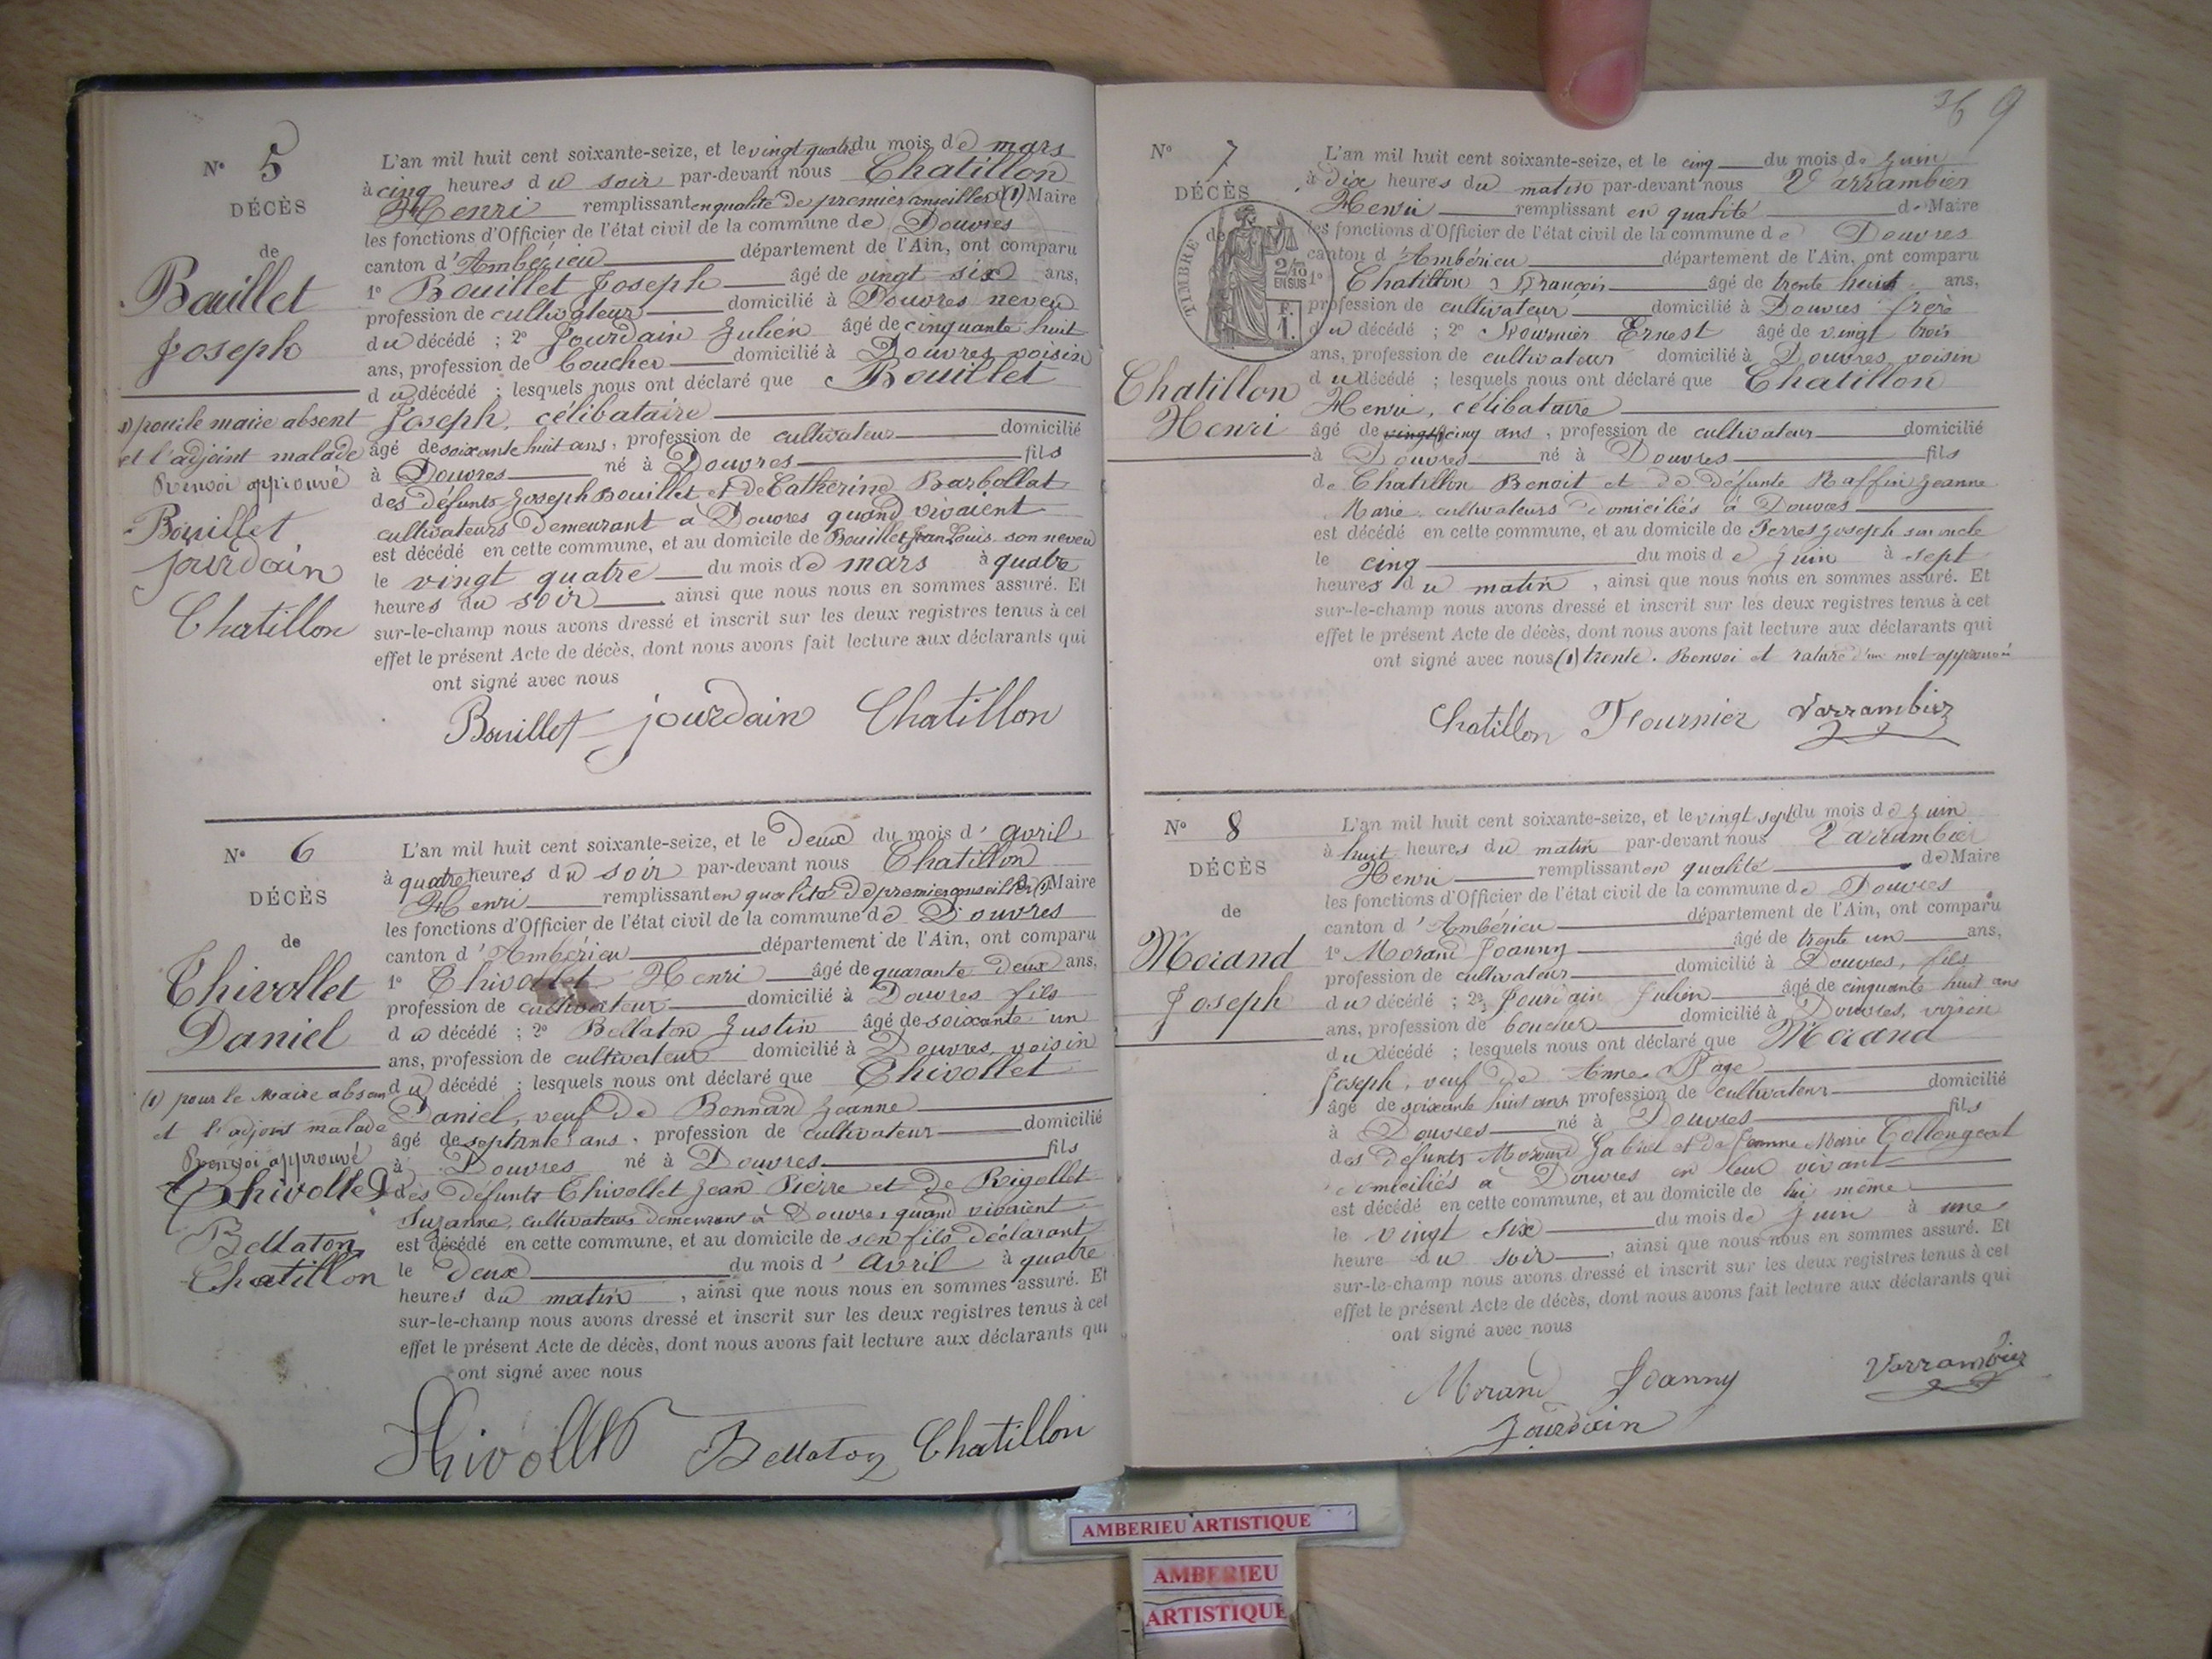 N° 5
DÉCÈS
de
Bouillet
Joseph
1) pour le maire absent
et l'adjoint malade
Renvoi approuvé
Bouillet
Jourdain
Chatillon
L'an mil huit cent soixante-seize, et le vingt quatre du mois de mars
à cinq heures du soir par-devant nous Chatillon
Henri remplissant en qualité de premier conseiller (1) Maire
les fonctions d'Officier de l'état civil de la commune de Douvres
canton d'Ambérieu département de l'Ain, ont comparu
1° Bouillet Joseph âgé de vingt six ans,
profession de cultivateur domicilié à Douvres neveu
du décédé ; 2° Jourdain Julien âgé de cinquante huit
ans, profession de boucher domicilié à Douvres voisin
du décédé ; lesquels nous ont déclaré que Bouillet
Joseph, célibataire
âgé de soixante huit ans, profession de cultivateur domicilié
à Douvres né à Douvres fils
des défunts Joseph Bouillet et de Catherine Barbollat
cultivateurs demeurant à Douvres quand vivaient
est décédé en cette commune, et au domicile de Bouillet Jean Louis son neveu
le vingt quatre du mois de mars à quatre
heures du soir ainsi que nous nous en sommes assuré. Et
sur-le-champ nous avons dressé et inscrit sur les deux registres tenus à cet
effet le présent Acte de décès, dont nous avons fait lecture aux déclarants qui
ont signé avec nous
Bouillet Jourdain Chatillon
N° 6
DÉCÈS
de
Thivollet
Daniel
(1) pour le Maire absent
et l'adjoint malade
Renvoi approuvé
Thivollet
Bellaton
Chatillon
L'an mil huit cent soixante-seize, et le Deux du mois d'avril
à quatre heures du soir par-devant nous Chatillon
Henri remplissant en qualité de premier conseiller (1) Maire
les fonctions d'Officier de l'état civil de la commune de Douvres
canton d'Ambérieu département de l'Ain, ont comparu
1° Thivollet Henri âgé de quarante Deux ans,
profession de cultivateur domicilié à Douvres fils
du décédé ; 2° Bellaton Justin âgé de soixante un
ans, profession de cultivateur domicilié à Douvres voisin
du décédé ; lesquels nous ont déclaré que Thivollet
Daniel, veuf de Bonnard Jeanne
âgé de septante ans, profession de cultivateur domicilié
à Douvres né à Douvres fils
des défunts Thivollet Jean Pierre et de Rigollet
Suzanne, cultivateurs demeurant à Douvres quand vivaient
est décédé en cette commune, et au domicile de son fils déclarant
le Deux du mois d'avril à quatre
heures du matin, ainsi que nous nous en sommes assuré. Et
sur-le-champ nous avons dressé et inscrit sur les deux registres tenus à cet
effet le présent Acte de décès, dont nous avons fait lecture aux déclarants qui
ont signé avec nous
Thivollet Bellaton Chatillon
36 9
N° 7
DÉCÈS
de
TIMBRE
2/10
EN SUS
F.
1.
Chatillon
Henri
L'an mil huit cent soixante-seize, et le cinq du mois de Juin
à dix heures du matin par-devant nous Varrambier
Henri remplissant en qualité de Maire
les fonctions d'Officier de l'état civil de la commune de Douvres
canton d'Ambérieu département de l'Ain, ont comparu
1° Chatillon François âgé de trente huit ans,
profession de cultivateur domicilié à Douvres frère
du décédé ; 2° Fournier Ernest âgé de vingt trois
ans, profession de cultivateur domicilié à Douvres, voisin
du décédé ; lesquels nous ont déclaré que Chatillon
Henri, célibataire
âgé de vingt (1) cinq ans, profession de cultivateur domicilié
à Douvres né à Douvres fils
de Chatillon Benoit et de défunte Raffin Jeanne
Marie, cultivateurs domiciliés à Douvres
est décédé en cette commune, et au domicile de Terres Joseph son oncle
le cinq du mois de Juin à sept
heures du matin, ainsi que nous nous en sommes assuré. Et
sur-le-champ nous avons dressé et inscrit sur les deux registres tenus à cet
effet le présent Acte de décès, dont nous avons fait lecture aux déclarants qui
ont signé avec nous (1) trente. Renvoi et rature d'un mot approuvé
Chatillon Fournier Varrambier
N° 8
DÉCÈS
de
Morand
Joseph
L'an mil huit cent soixante-seize, et le vingt sept du mois de Juin
à huit heures du matin par-devant nous Varrambier
Henri remplissant en qualité de Maire
les fonctions d'Officier de l'état civil de la commune de Douvres
canton d'Ambérieu département de l'Ain, ont comparu
1° Morand Joanny âgé de trente un ans,
profession de cultivateur domicilié à Douvres, fils
du décédé ; 2° Jourdain Julien âgé de cinquante huit ans
ans, profession de boucher domicilié à Douvres, voisin
du décédé ; lesquels nous ont déclaré que Morand
Joseph, veuf de Anne Page
âgé de soixante huit ans profession de cultivateur domicilié
à Douvres né à Douvres fils
des défunts Morand Gabriel et de Jeanne Marie
domiciliés à Douvres en leur vivant
est décédé en cette commune, et au domicile de lui même
le vingt six du mois de Juin à une
heure du soir, ainsi que nous nous en sommes assuré. Et
sur-le-champ nous avons dressé et inscrit sur les deux registres tenus à cet
effet le présent Acte de décès, dont nous avons fait lecture aux déclarants qui
ont signé avec nous
Morand Joanny Varrambier
Jourdain
AMBERIEU ARTISTIQUE
AMBERIEU
ARTISTIQUE